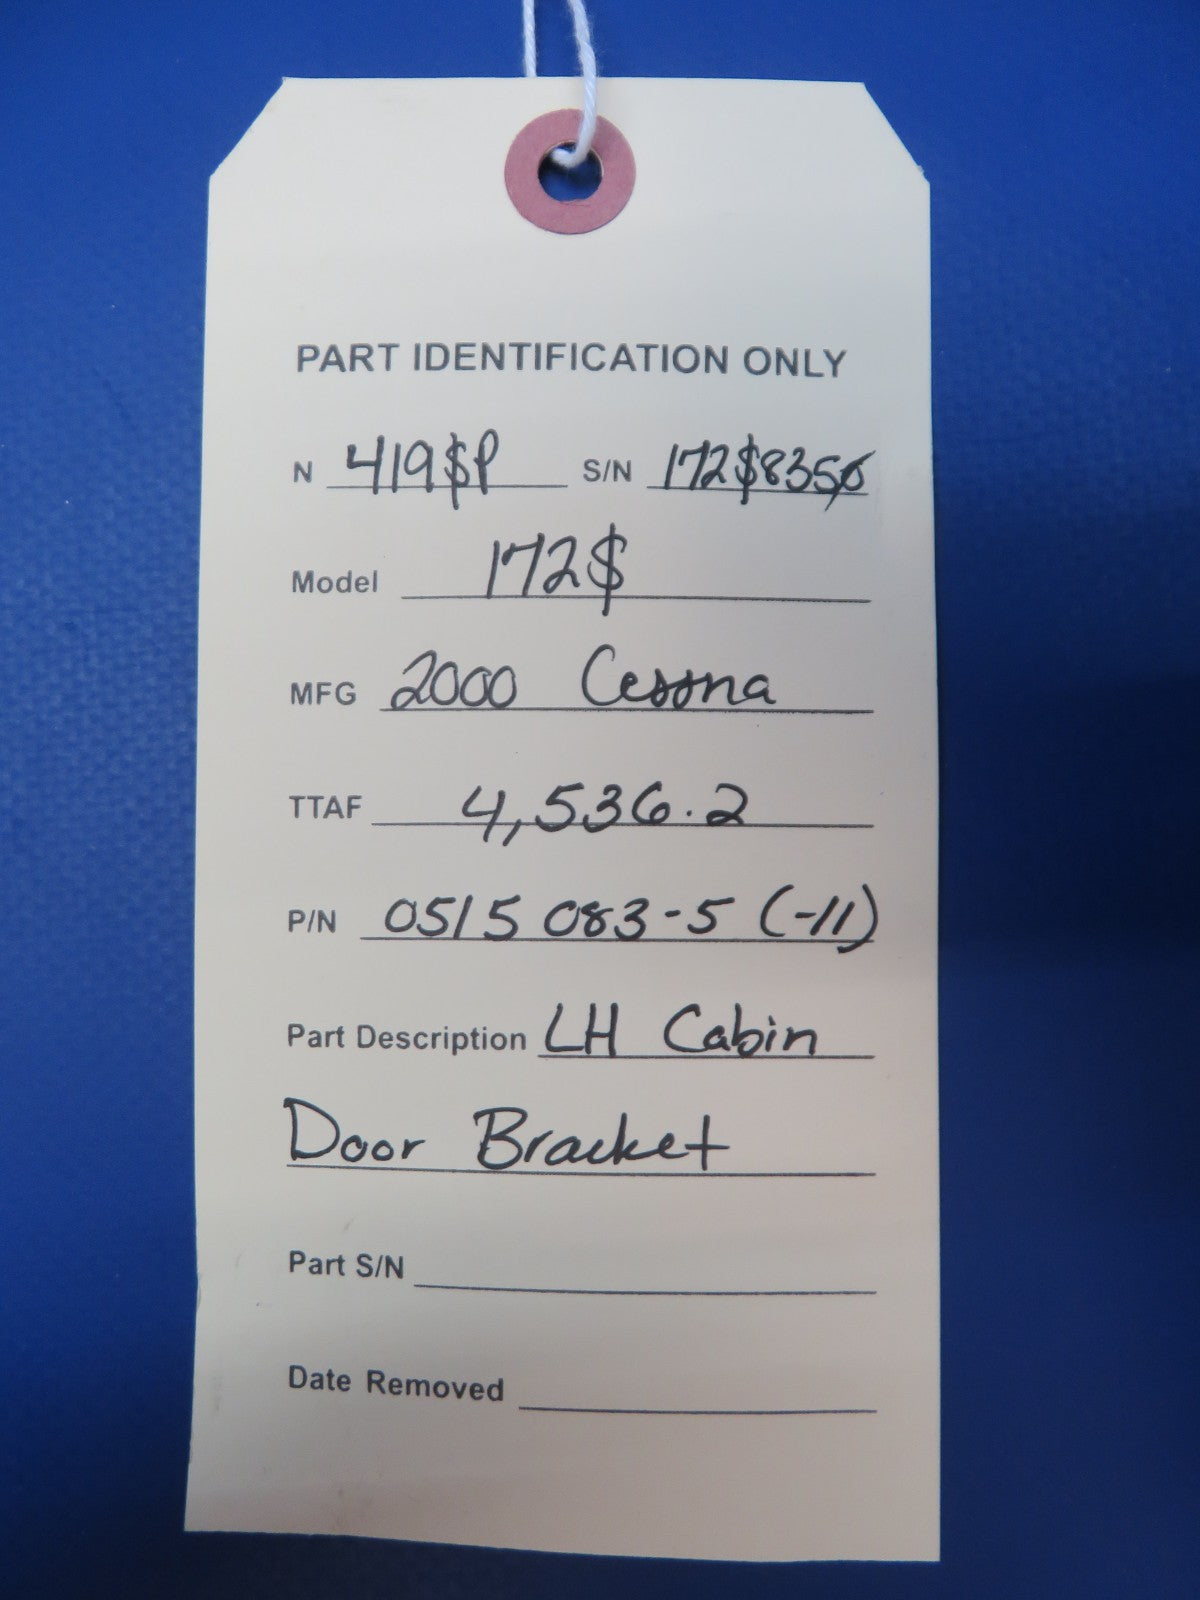 PART IDENTIFICATION ONLY
N 419$P S/N 172$8350
Model 172$
MFG 2000 Cessna
TTAF 4,536.2
P/N 0515083-5 (-11)
Part Description LH Cabin
Door Bracket
Part S/N
Date Removed